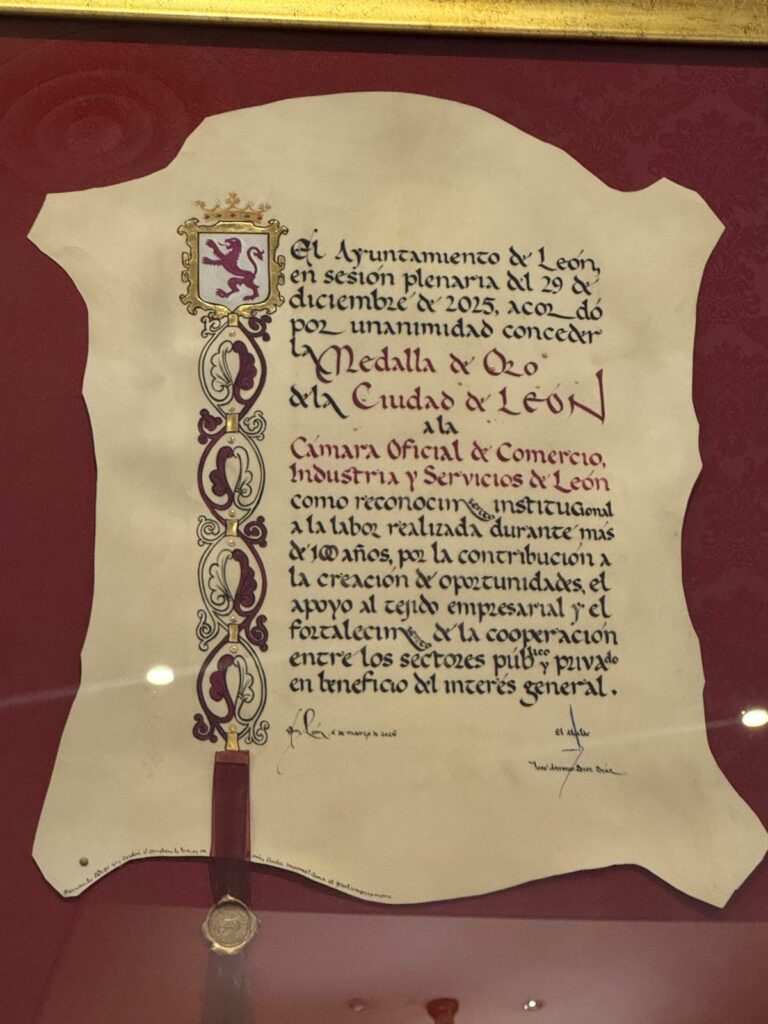 El Ayuntamiento de León,
en sesión plenaria del 29 de
diciembre de 2025, acordó
por unanimidad conceder
la Medalla de Oro
de la Ciudad de LEÓN
a la
Cámara Oficial de Comercio,
Industria y Servicios de León
como reconocimiento institucional
a la labor realizada durante más
de 100 años, por la contribución a
la creación de oportunidades, el
apoyo al tejido empresarial y el
fortalecimiento de la cooperación
entre los sectores público y privado
en beneficio del interés general.
En León, 6 de marzo de 2026
el alcalde
José Antonio Diez Díaz